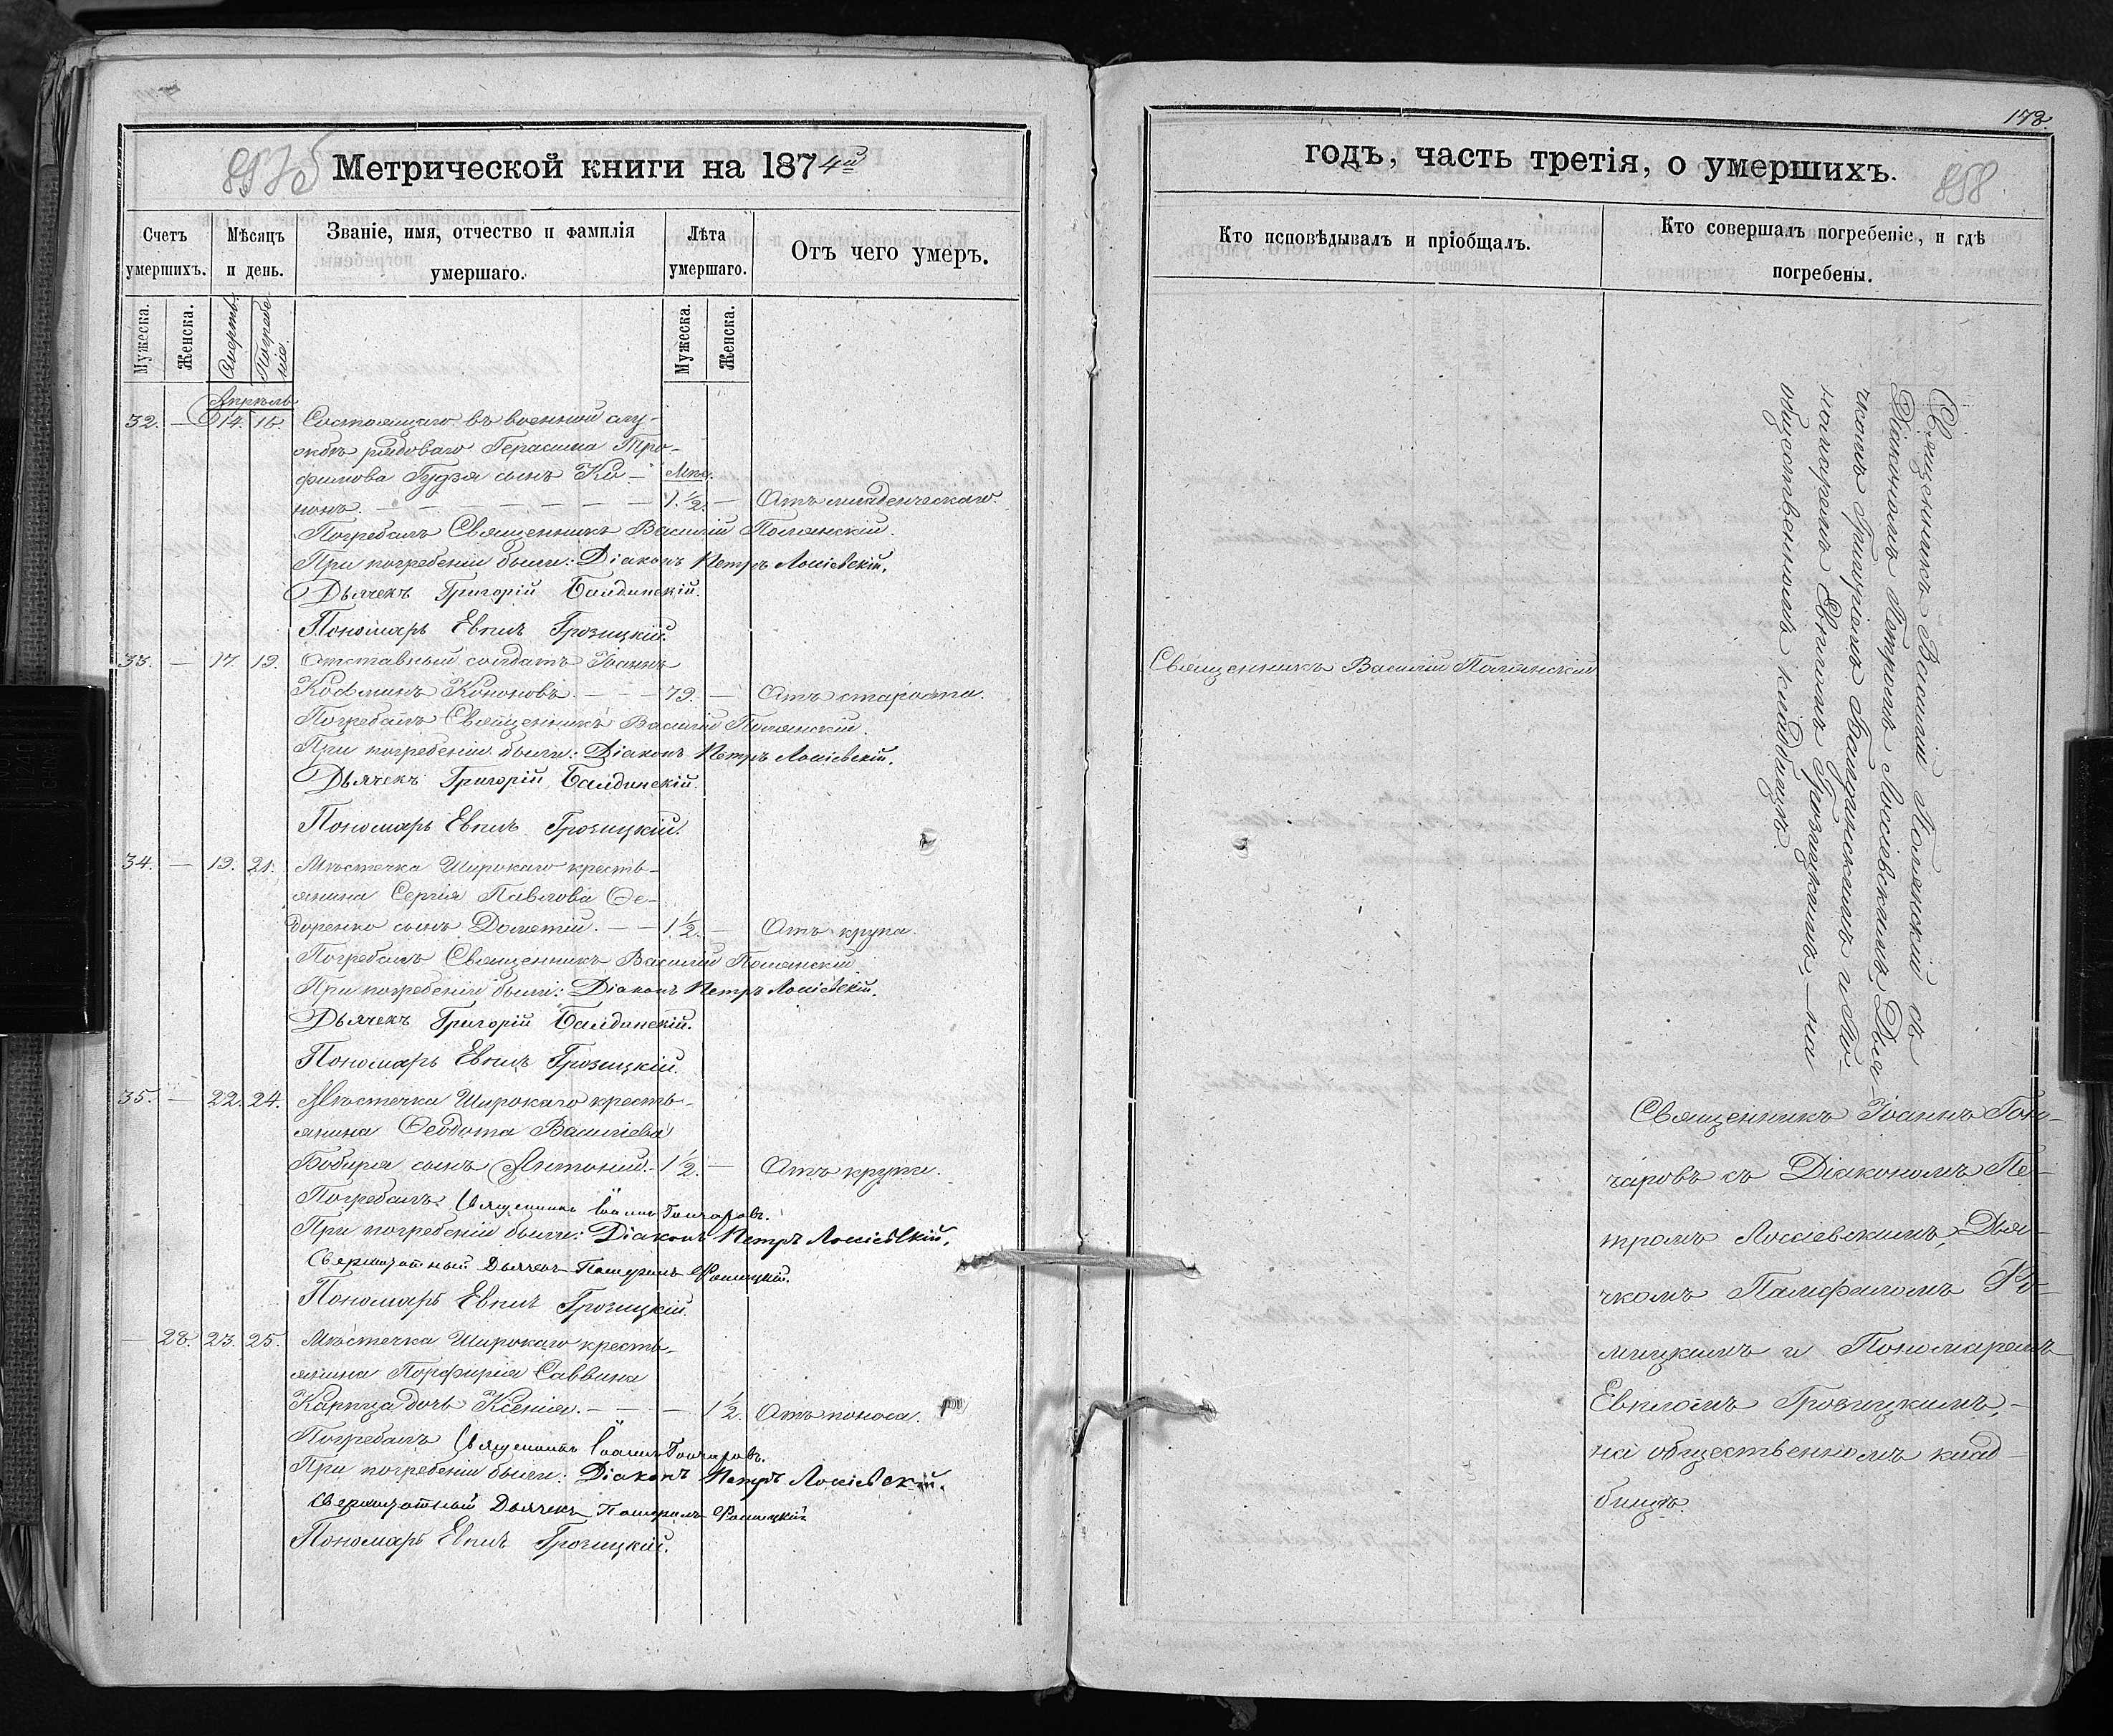 857 об
Метрической книги на 1874й
Счетъ умершихъ.
Мѣсяцъ и день.
Званіе, имя, отчество и фамилія умершаго.
Лѣта умершаго.
Отъ чего умеръ.
Мужеска.
Женска.
Смерть.
Погребеніе.
Мужеска.
Женска.
Апрѣль
32. — 14. 16. Состоящаго въ военной слу-
жбѣ рядоваго Герасима Тро-
фимова Гудзя сынъ Ко- Мцъ.
нонъ. — 1 ½. — Отъ младенческаго.
Погребалъ Священникъ Василій Полянскій.
При погребеніи были: Діаконъ Петръ Лосіевскій.
Дьячекъ Григорій Балдинскій.
Пономарь Евпилъ Грозицкій.
33. — 17. 19. Отставный солдатъ Іоаннъ
Косминъ Кононовъ. — 79. — Отъ старости.
Погребалъ Священникъ Василій Полянскій.
При погребеніи были: Діаконъ Петръ Лосіевскій.
Дьячекъ Григорій Балдинскій.
Пономарь Евпилъ Грозицкій.
34. — 19. 21. Мѣстечка Широкаго кресть-
янина Сергія Павлова Ѳе-
доренко сынъ Дометій. — 1 ½. — Отъ крупа.
Погребалъ Священникъ Василій Полянскій.
При погребеніи были: Діаконъ Петръ Лосіевскій.
Дьячекъ Григорій Балдинскій.
Пономарь Евпилъ Грозицкій.
35. — 22. 24. Мѣстечка Широкаго кресть-
янина Ѳеодота Василіева
Бобыря сынъ Антоній. — 1 ½. — Отъ крупа.
Погребалъ Священникъ Іоаннъ Гончаровъ.
При погребеніи были: Діаконъ Петръ Лосіевскій.
Сверхштатный Дьячекъ Памфилъ Ромицкій.
Пономарь Евпилъ Грозицкій.
— 28. 23. 25. Мѣстечка Широкаго кресть-
янина Порфирія Саввина
Карпца дочь Ксенія. — 1 ½. Отъ поноса.
Погребалъ Священникъ Іоаннъ Гончаровъ.
При погребеніи были: Діаконъ Петръ Лосіевскій.
Сверхштатный Дьячекъ Памфилъ Ромицкій
Пономарь Евпилъ Грозицкій.
173.
858
годъ, часть третія, о умершихъ.
Кто исповѣдывалъ и пріобщалъ.
Кто совершалъ погребеніе, и гдѣ погребены.
Священникъ Василій Полянскій
Священникъ Василій Полянскій съ
Діакономъ Петромъ Лосіевскимъ, Дья-
чкомъ Григоріемъ Балдинскимъ и По-
номаремъ Евпломъ Грозицкимъ, — на
общественномъ кладбищѣ.
Священникъ Іоаннъ Гон-
чаровъ съ Діакономъ Пе-
тромъ Лосіевскимъ, Дья-
чкомъ Памфиломъ Ро-
мицкимъ и Пономаремъ
Евпломъ Грозицкимъ, —
на общественномъ клад-
бищѣ.